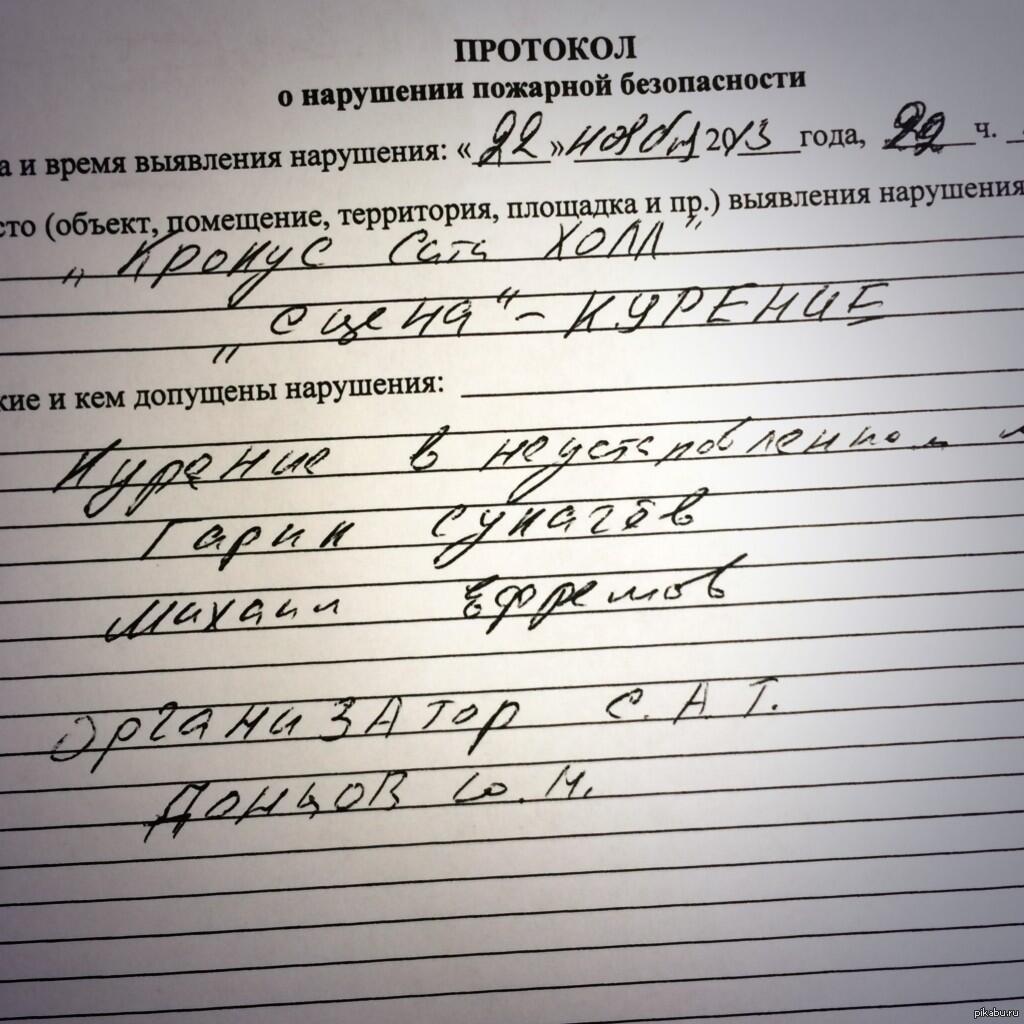 ПРОТОКОЛ
о нарушении пожарной безопасности
а и время выявления нарушения: «22» ноября 2013 года, 22 ч.
сто (объект, помещение, территория, площадка и пр.) выявления нарушения
„Крокус Сити ХОЛЛ"
„Сцена" - КУРЕНИЕ
кие и кем допущены нарушения:
Курение в неустановленном м
Гарик Сукачёв
Михаил Ефремов
Организатор С.А.Т.
Донцов Ю.Н.
pikabu.ru